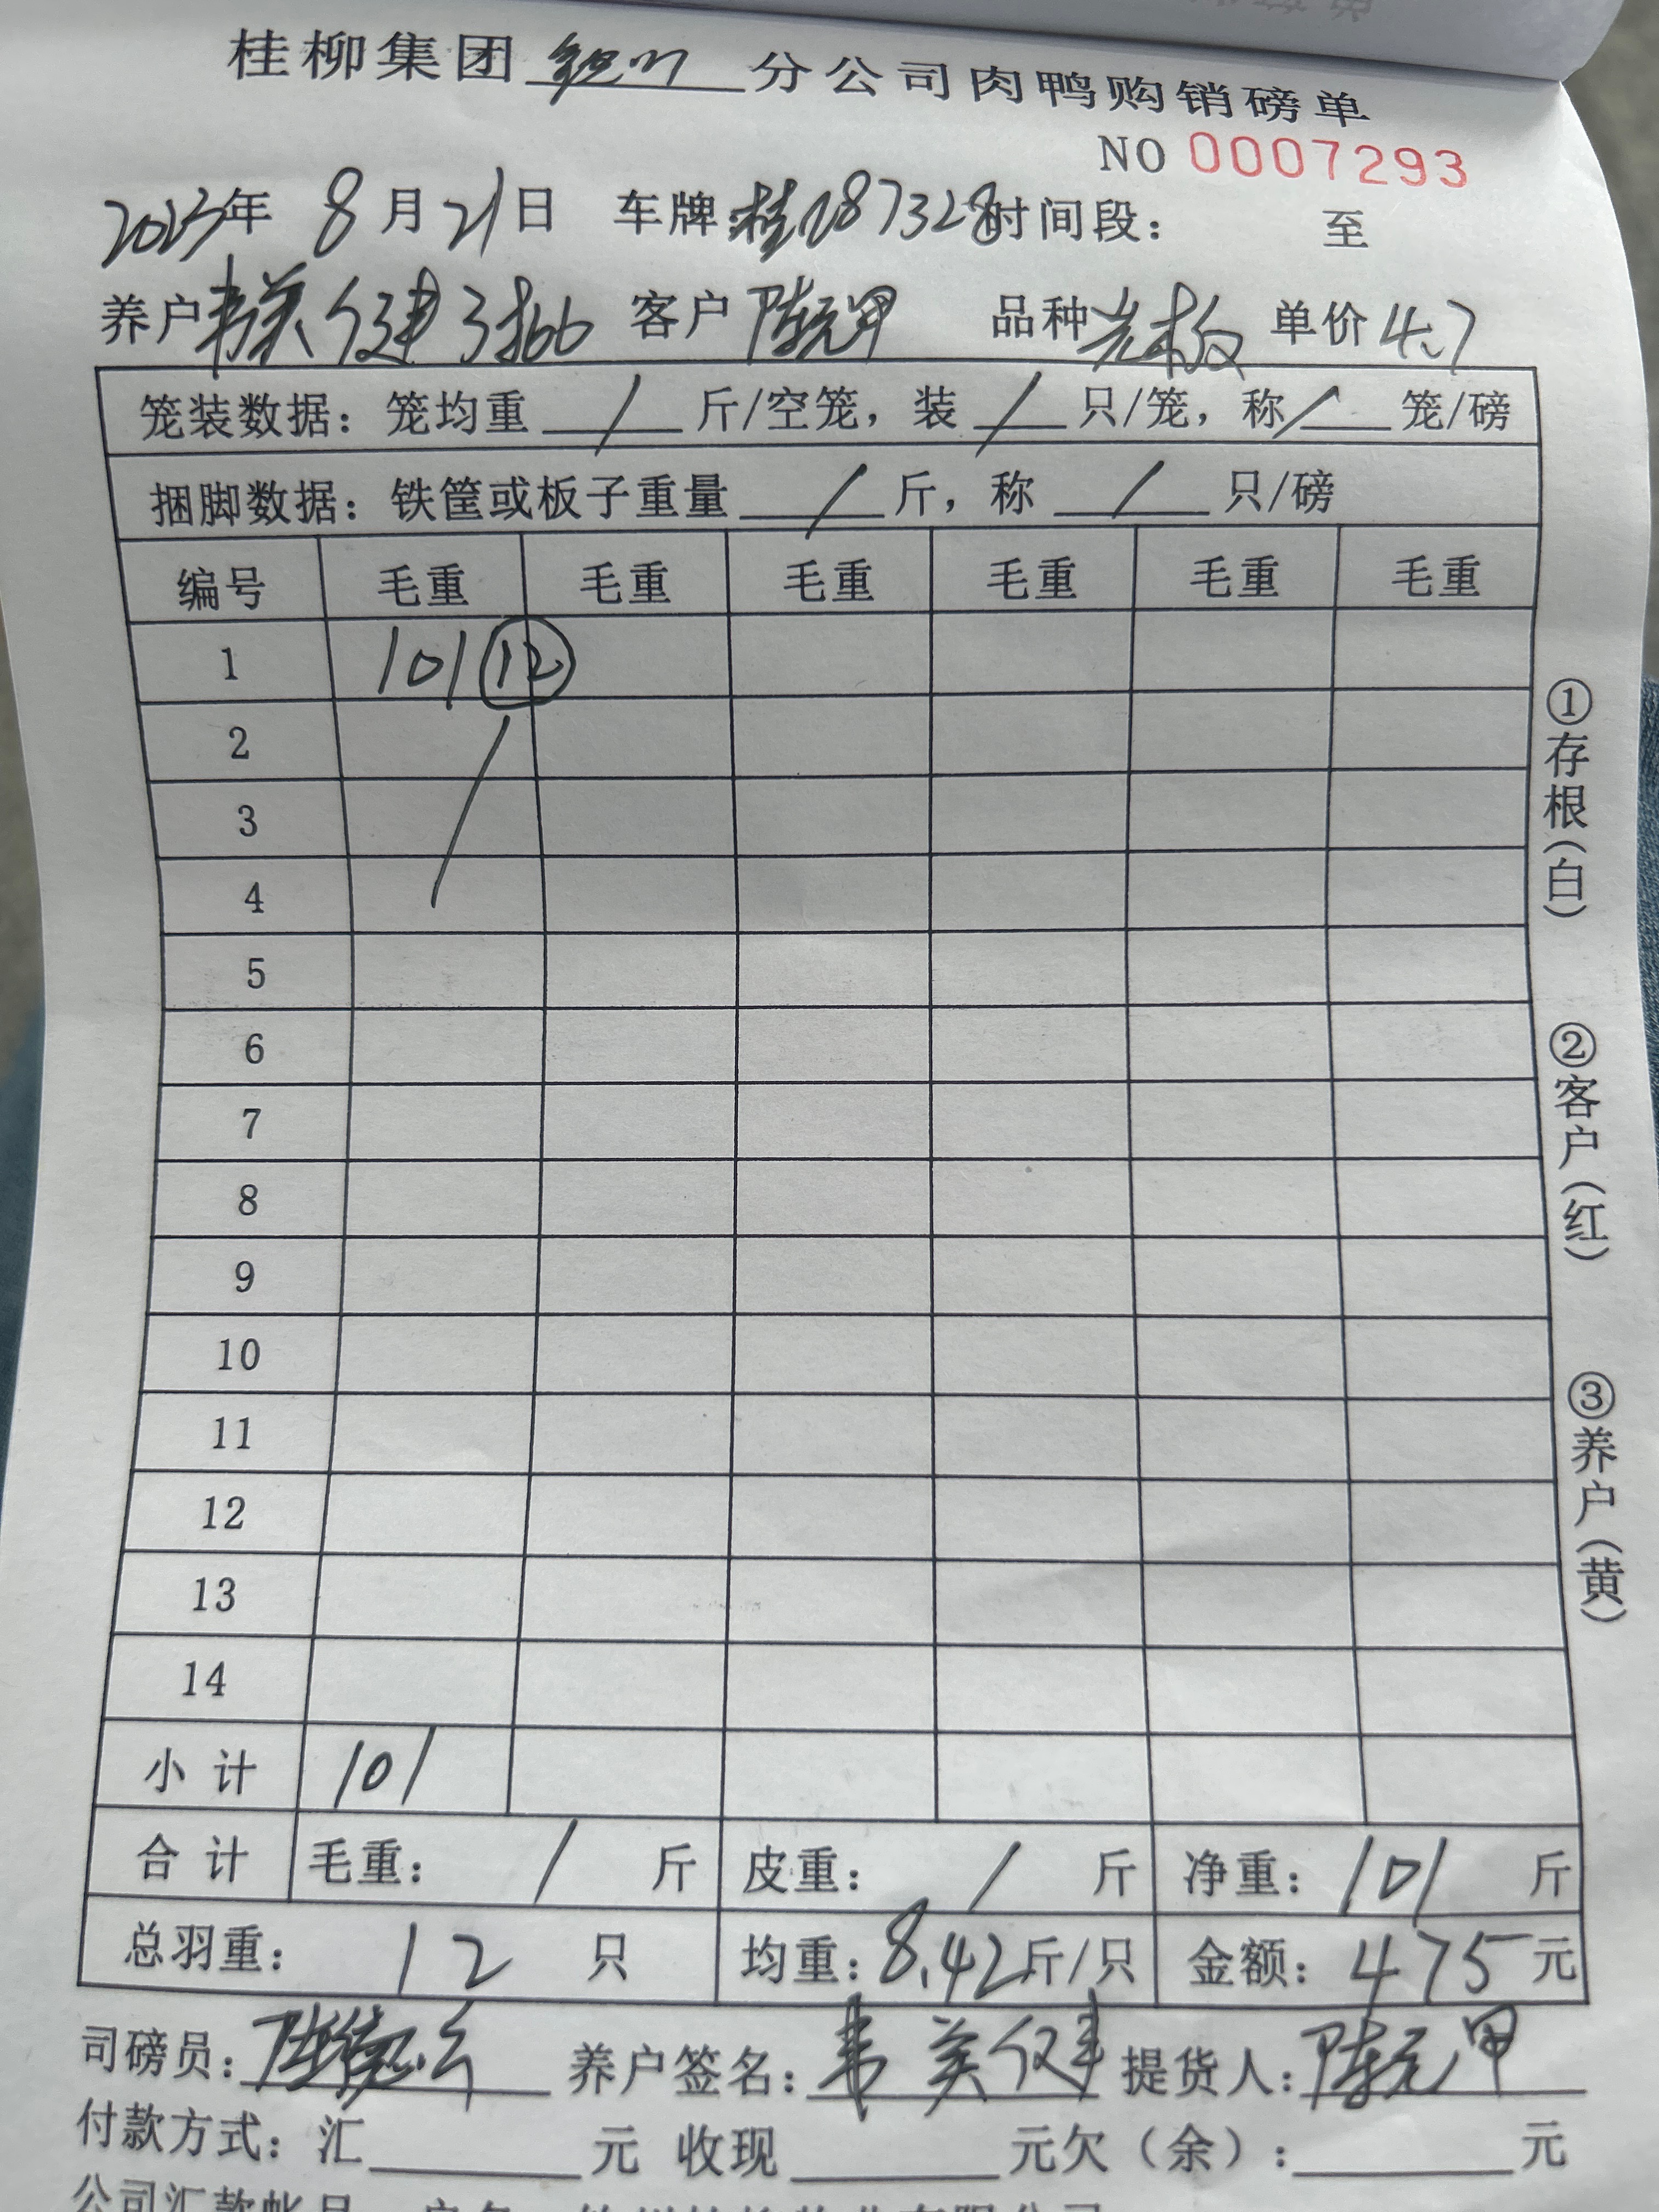 桂柳集团 分公司肉鸭购销磅单
NO 0007293
2025年 8月21日 车牌:桂N87328 时间段: 至
养户 韦英健 客户 陈元甲 品种 单价 4.7
笼装数据: 笼均重 / 斤/空笼, 装 / 只/笼, 称 / 笼/磅
捆脚数据: 铁筐或板子重量 / 斤, 称 / 只/磅
编号 毛重 毛重 毛重 毛重 毛重 毛重
1 101 ⑫
2
3
4
5
6
7
8
9
10
11
12
13
14
小计 101
合计 毛重: / 斤 皮重: / 斤 净重: 101 斤
总羽重: 12 只 均重: 8.42 斤/只 金额: 475 元
司磅员: 养户签名: 韦英健 提货人: 陈元甲
付款方式: 汇 元 收现 元欠(余): 元
①存根(白)
②客户(红)
③养户(黄)